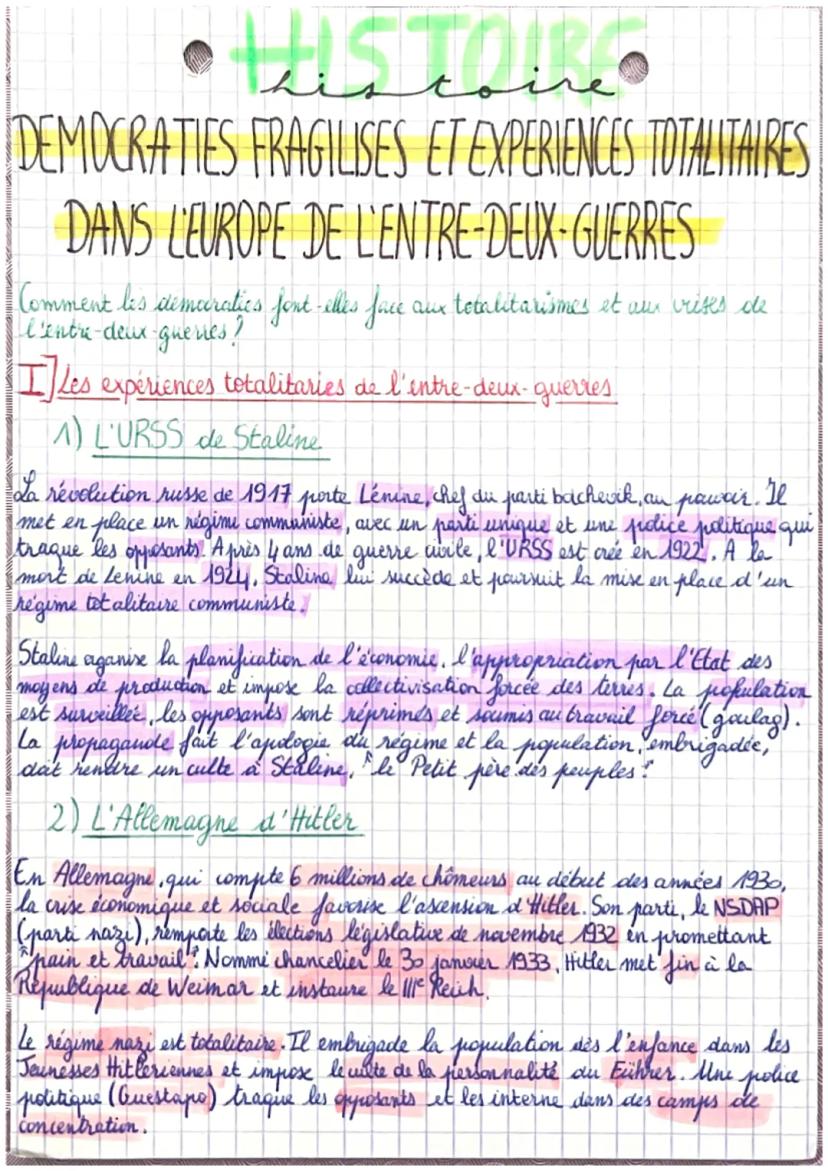 HISTOIRE
histoire
DEMOCRATIES FRAGILISES ET EXPERIENCES TOTALITAIRES
DANS L'EUROPE DE L'ENTRE-DEUX-GUERRES
Comment les démocraties font-elles face aux totalitarismes et aux crises de
l'entre-deux-guerres?
I] Les expériences totalitaries de l'entre-deux-guerres
1) L'URSS de Staline
La révolution russe de 1917 porte Lénine, chef du parti bochevik, au pouvoir. Il
met en place un régime communiste, avec un parti unique et une police politique qui
traque les opposants. Après 4 ans de guerre civile, l'URSS est crée en 1922. A la
mort de Lenine en 1924, Staline lui succède et poursuit la mise en place d'un
régime totalitaire communiste.
Staline oganise la planification de l'économie, l'appropriation par l'Etat des
moyens de production et impose la collectivisation forcée des terres. La population
est surveillée, les opposants sont réprimés et soumis au travail forcé (goulag).
La propagande fait l'apologie du régime et la population, embrigadée,
doit rendre un culte à Staline, "le Petit père des peuples".
2) L'Allemagne d'Hitler
En Allemagne, qui compte 6 millions de chômeurs au début des années 1930,
la crise économique et sociale favorise l'ascension d'Hitler. Son parti, le NSDAP
(parti nazi), remporte les élections législative de novembre 1932 en promettant
"pain et travail". Nommé chancelier le 30 janvier 1933, Hitler met fin à la
République de Weimar et instaure le IIIe Reich.
Le régime nazi est totalitaire. Il embrigade la population dès l'enfance dans les
Jeunesses Hitlériennes et impose le culte de la personnalité du Führer. Une police
politique (Guestapo) traque les opposants et les interne dans des camps de
concentration.